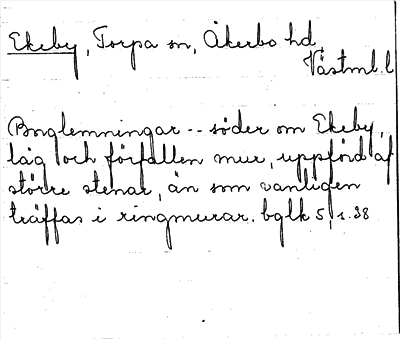 Ekeby, Torpa sn, Åkerbo hd,
Västml. l
Borglemningar -- söder om Ekeby,
låg och förfallen mur, uppförd af
större stenar, än som vanligen
träffas i ringmurar. bglk 5, s. 38